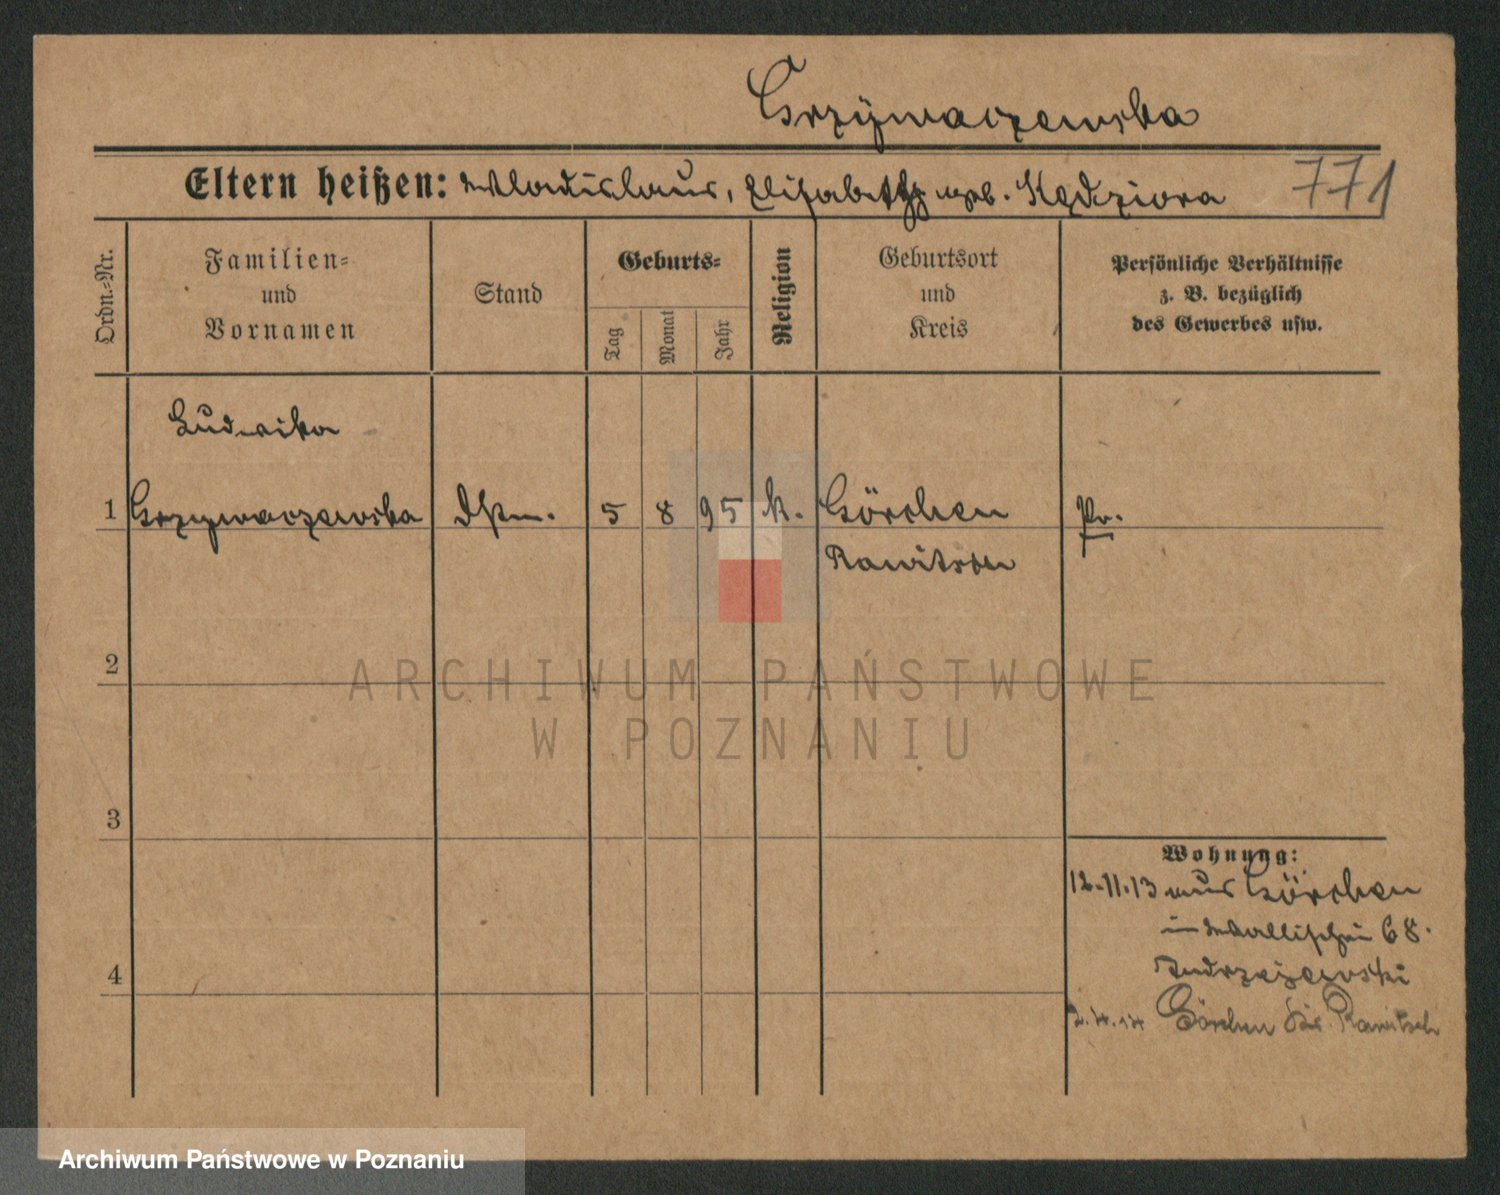 Grzÿwaczewska
Eltern heißen: Wladislaus, Elisabeth geb. Kędziora 771
Ordn.-Nr.
Familien- und Vornamen
Stand
Geburts-
Tag
Monat
Jahr
Religion
Geburtsort und Kreis
Persönliche Verhältnisse
z. B. bezüglich
des Gewerbes usw.
Ludwika
1 Grzywaczewska 5 8 95 k. Görchen Pr.
Rawitsch
2
3
Wohnung:
12.11.13 aus Görchen
in Wallischei 68.
Andrzejewski
4
2.4.14 Görchen Kr. Rawitsch
ARCHIWUM PAŃSTWOWE
W POZNANIU
Archiwum Państwowe w Poznaniu